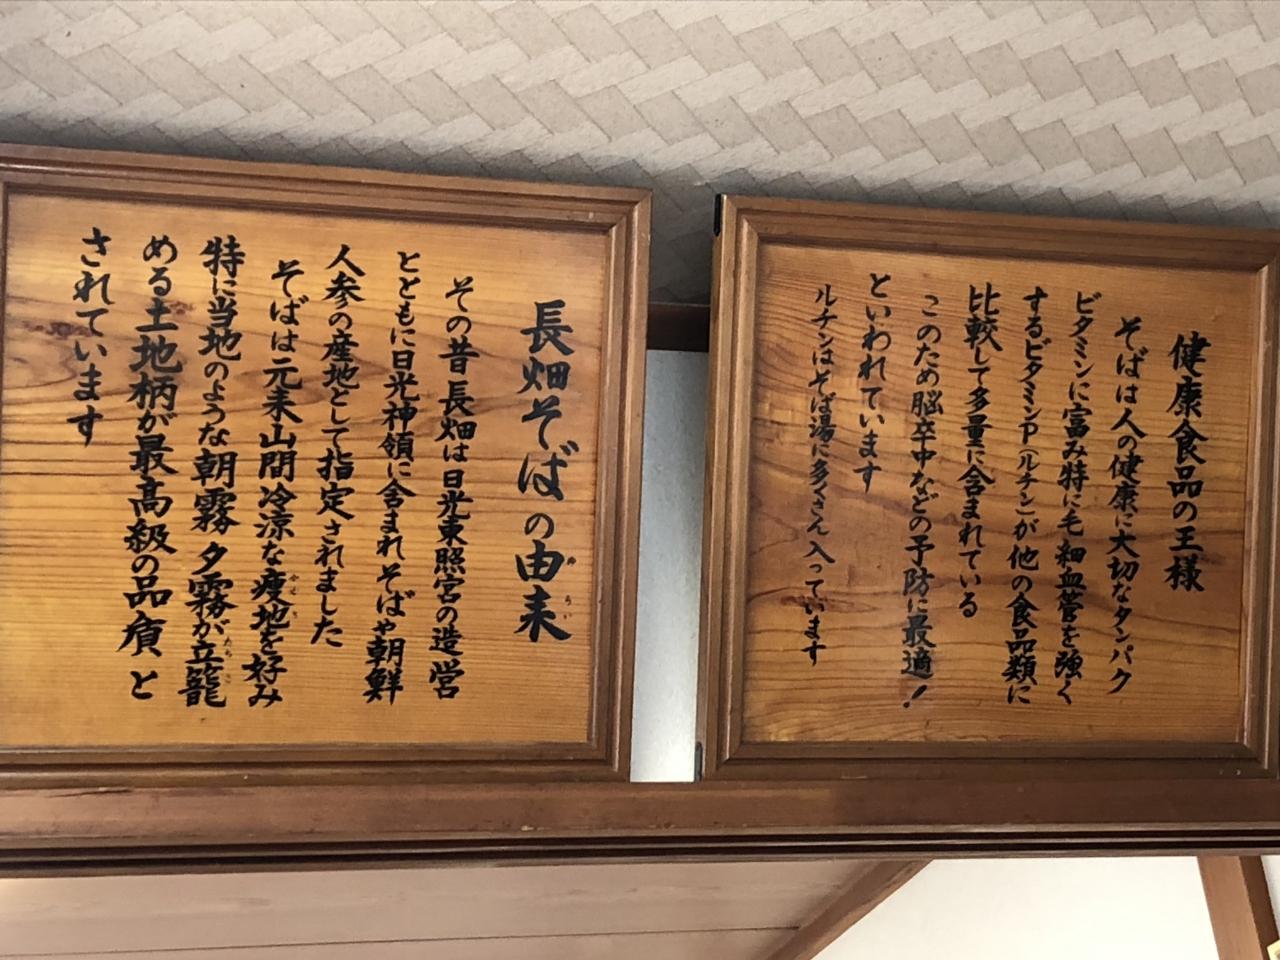 健康食品の王様
そばは人の健康に大切なタンパク
ビタミンに富み特に毛細血菅を強く
するビタミンP(ルチン)が他の食品類に
比較して多量に含まれている
このため脳卒中などの予防に最適!
といわれています
ルチンはそば湯に多くさん入っています
長畑そばの由来
ゆらい
その昔長畑は日光東照宮の造営
とともに日光神領に含まれそばや朝鮮
人参の産地として指定されました
そばは元来山間冷涼な痩地を好み
やせち
特に当地のような朝霧夕霧が立籠
たちこ
める土地柄が最高級の品質と
されています